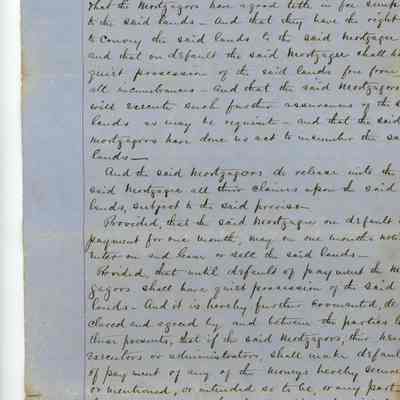 that the Mortgagors have a good title in fee simp
to the said lands - And that they have the right
to convey the said lands to the said Mortgagee
and that on default the said Mortgagee shall ha
quiet possession of the said lands free from
all incumbrances - And that the said Mortgagors
will execute such further assurances of the s
lands as may be requisite - and that the said
mortgagors have done no act to incumber the sa
lands -
And the said Mortgagors do release unto the
said Mortgagee all their claims upon the said
lands, subject to the said proviso -
Provided, that the said Mortgagee on default
payment for one month, may on one months noti
enter on and lease or sell the said lands -
Provided that until default of payment the M
gagors shall have quiet possession of the said
lands - And it is hereby further covenanted, de
clared and agreed by and between the parties to
these presents, that if the said Mortgagors, their heirs
executors or administrators, shall make default
of payment of any of the moneys hereby secure
or mentioned, or intended so to be, or any part